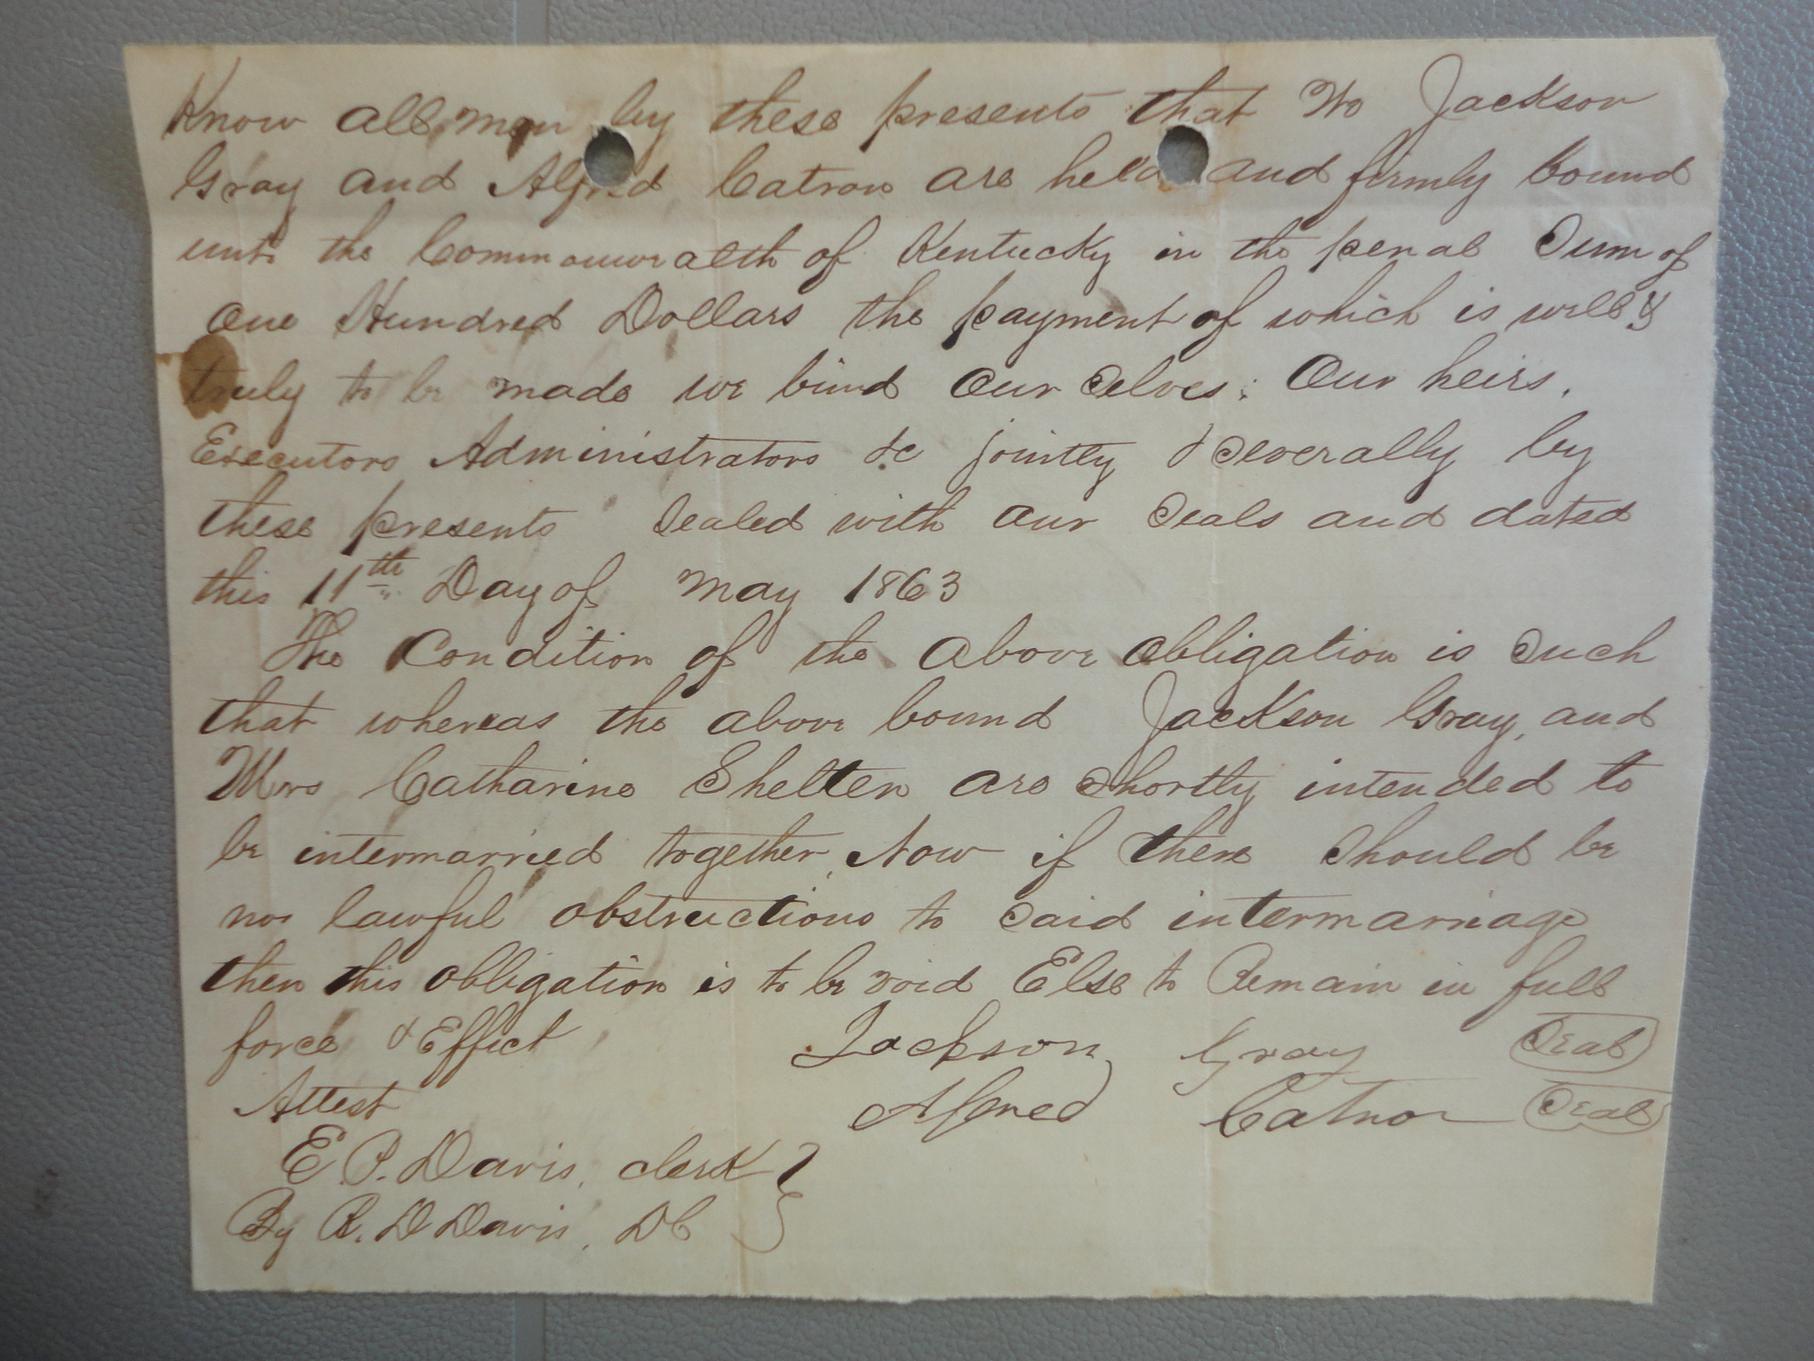 Know all men by these presents that We Jackson
Gray and Alfred Catron are held and firmly bound
unto the Commonwealth of Kentucky in the penal Sum of
One Hundred Dollars the payment of which is well &
truly to be made we bind Our Selves; Our heirs,
Executors Administrators &c jointly & Severally by
these presents Sealed with our Seals and dated
this 11th Day of May 1863
The Condition of the above obligation is Such
that whereas the above bound Jackson Gray, and
Mrs Catharine Shelten are Shortly intended to
be intermarried together, Now if there Should be
no lawful obstructions to Said intermarriage
then this obligation is to be void Else to Remain in full
force & Effect Jackson Gray Seal
Attest Alfred Catron Seal
E. P. Davis, clerk
By R. D Davis, DC